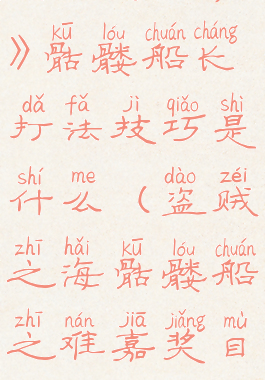 kū lóu chuán cháng
》骷髅船长
dǎ fǎ jì qiǎo shì
打法技巧是
shí me dào zéi
什么（盗贼
zhī hǎi kū lóu chuán
之海骷髅船
zhī nán jiā jiǎng mù
之难嘉奖目